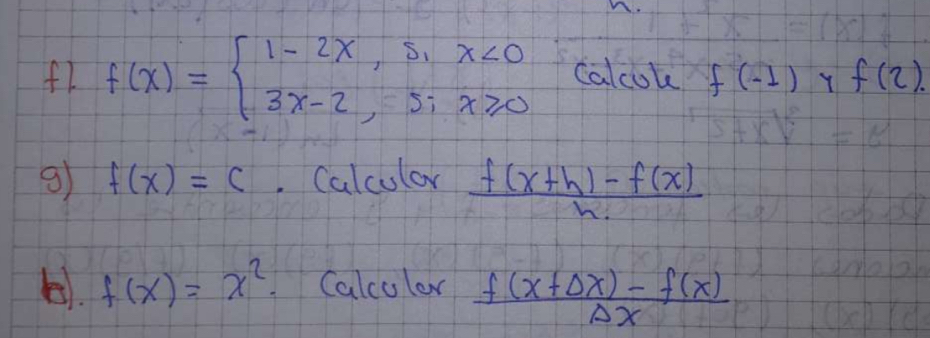 f). f(x) = { 1 - 2x, si x<0
3x-2, si x≥0 Calcule f(-1) y f(2).
g) f(x) = C. Calcular f(x+h) - f(x) / h.
h). f(x) = x². Calcular f(x+Δx) - f(x) / Δx